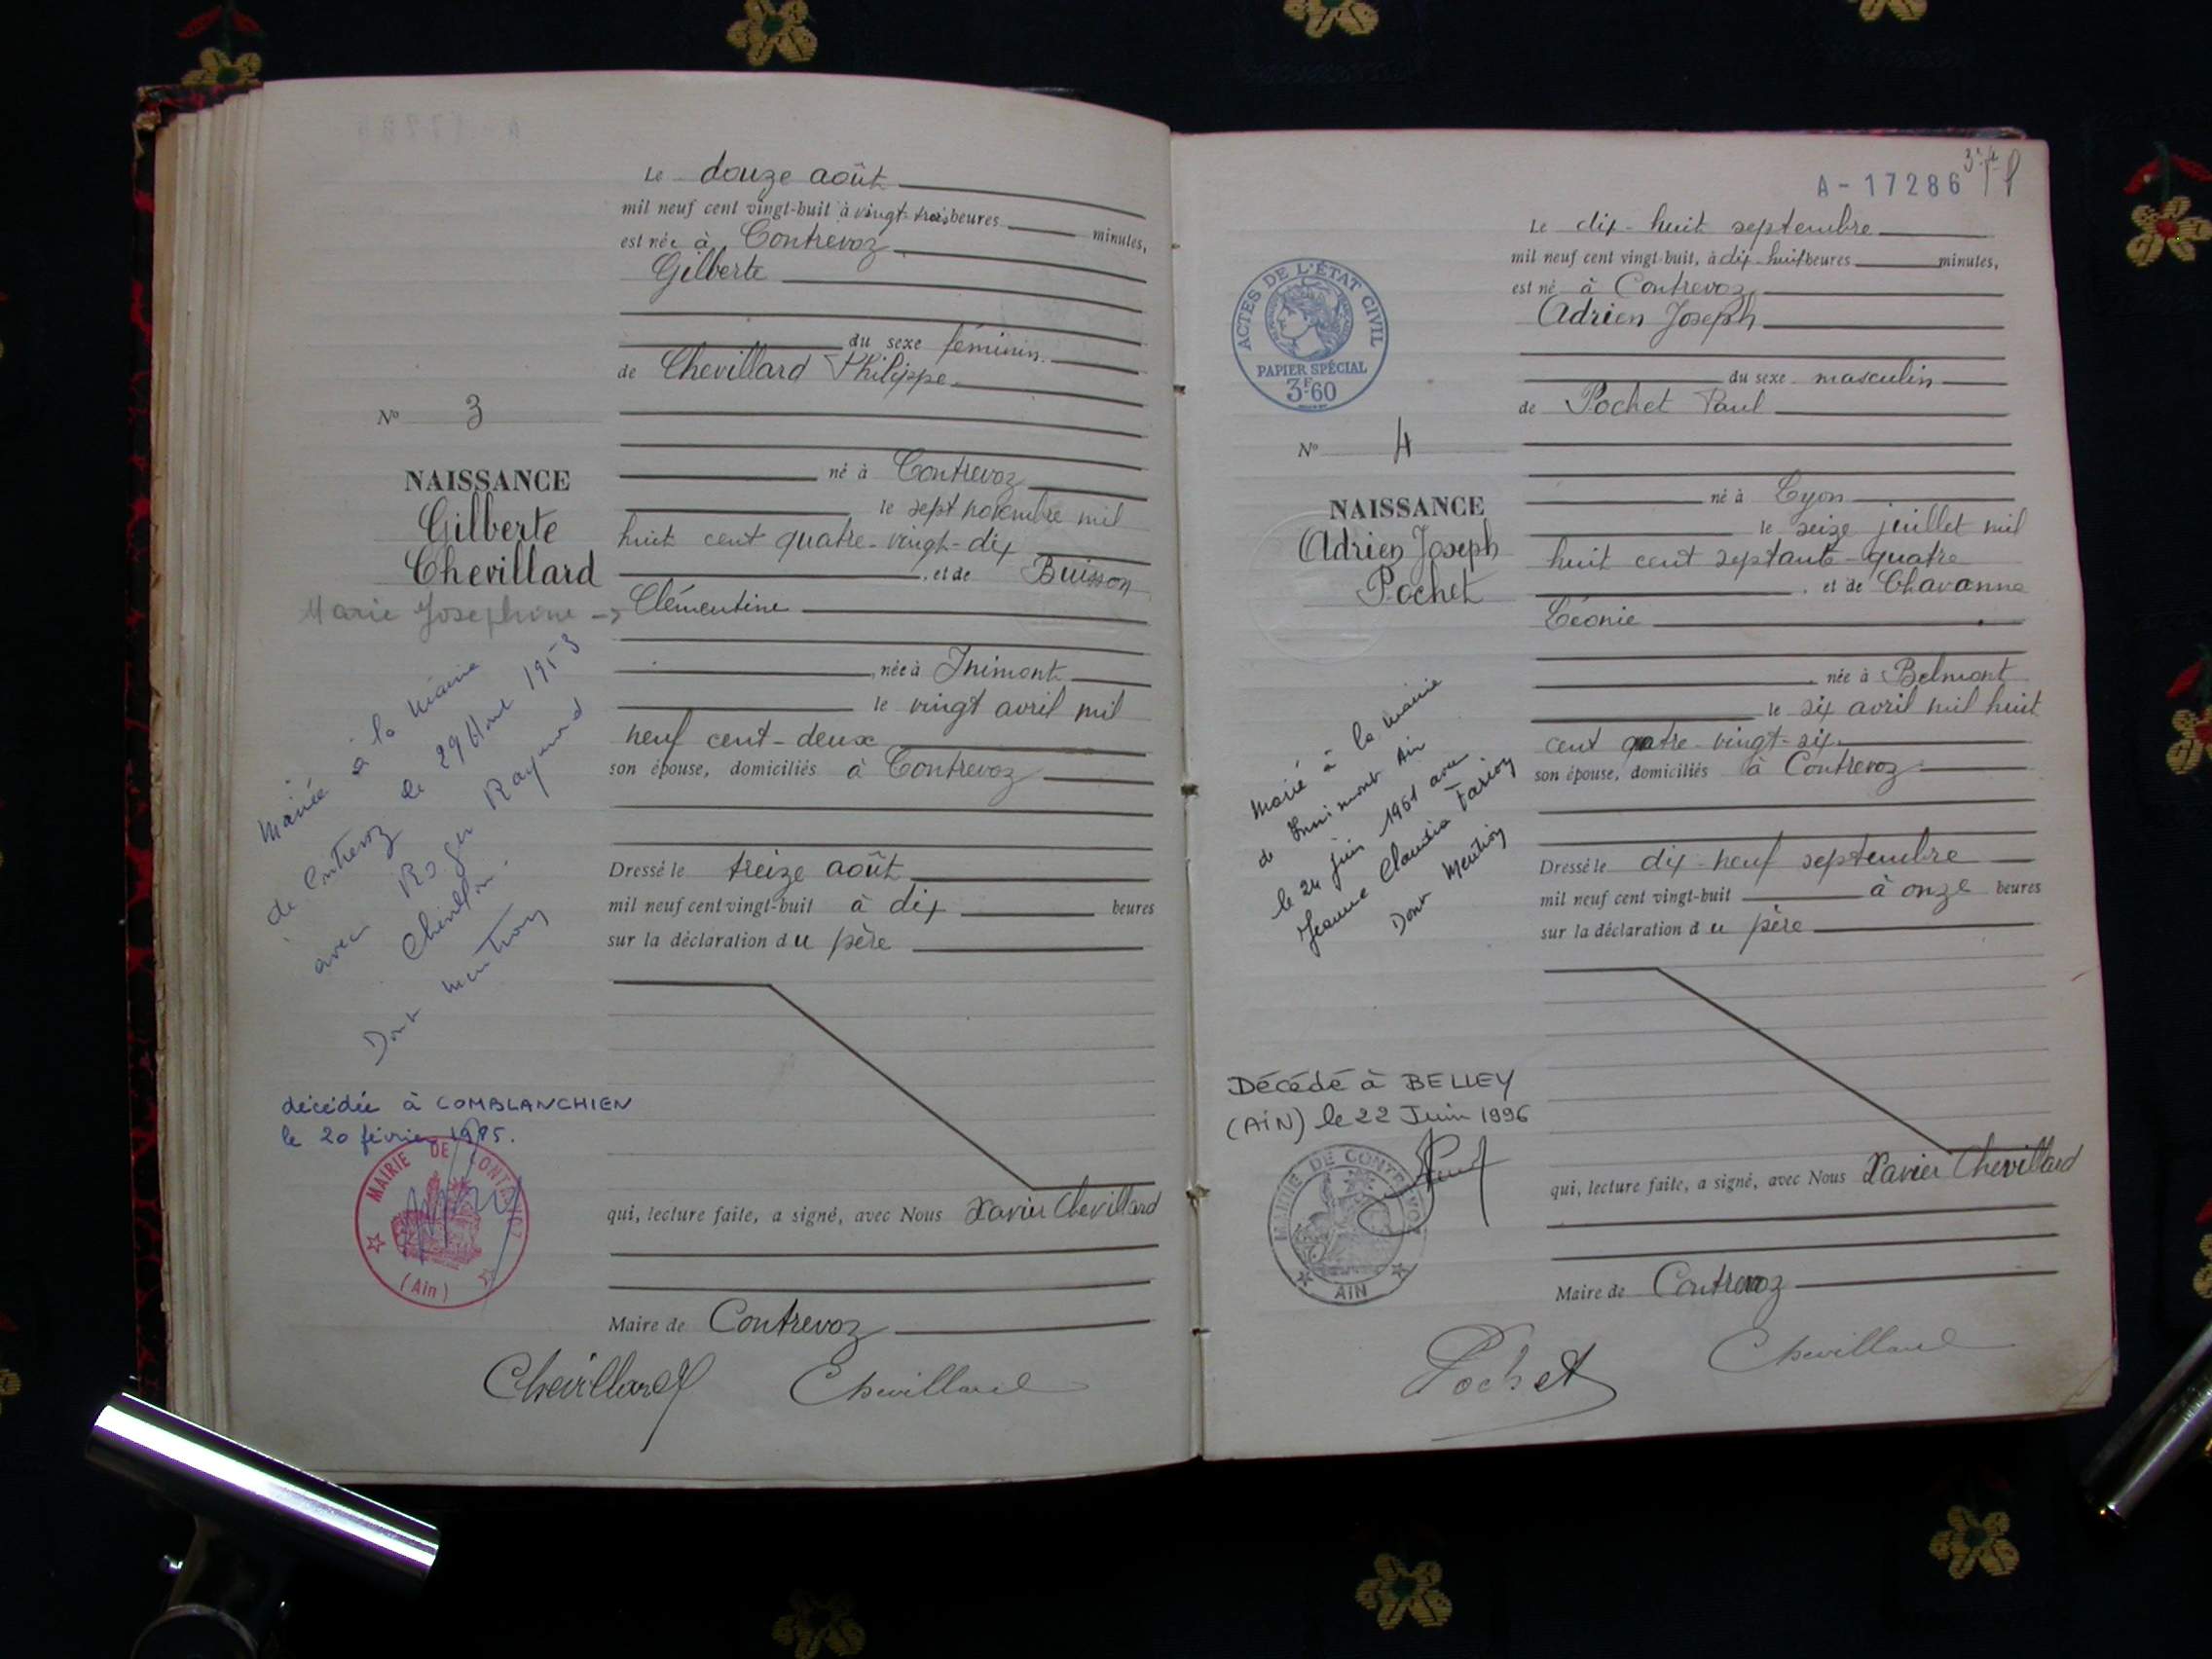 Le douze août
mil neuf cent vingt-huit à vingt-trois heures minutes,
est née à Contrevoz
Gilberte
du sexe féminin
de Chevillard Philippe
né à Contrevoz
le sept novembre mil
huit cent quatre-vingt-dix
, et de Buisson
Clémentine
, née à Inimont
le vingt avril mil
neuf cent-deux
son épouse, domiciliés à Contrevoz
Dressé le treize août
mil neuf cent vingt-huit à dix heures
sur la déclaration du père
qui, lecture faite, a signé, avec Nous Xavier Chevillard
Maire de Contrevoz
Chevillard Chevillard
No 3
NAISSANCE
Gilberte
Chevillard
Marie Josephine ->
Mariée à la Mairie
de Contrevoz le 1953
avec Roger Raymond
Dont mention
décédée à COMBLANCHIEN
le 20 février
MAIRIE DE CONTREVOZ
(Ain)
A-17286
Le dix-huit septembre
mil neuf cent vingt-huit, à dix-huit heures minutes,
est né à Contrevoz
Adrien Joseph
du sexe masculin
de Pochet Paul
né à Lyon
le seize juillet mil
huit cent septante-quatre
, et de Chavanne
Léonie
, née à Belmont
le six avril mil huit
cent quatre-vingt-six
son épouse, domiciliés à Contrevoz
Dressé le dix-neuf septembre
mil neuf cent vingt-huit à onze heures
sur la déclaration du père
qui, lecture faite, a signé, avec Nous Xavier Chevillard
Maire de Contrevoz
Pochet Chevillard
ACTES DE L'ÉTAT CIVIL
PAPIER SPÉCIAL
3F60
No 4
NAISSANCE
Adrien Joseph
Pochet
Marié à la Mairie
de Innimont Ain
le 24 juin 1961 avec
Jeanne Claudia
Dont Mention
Décédé à BELLEY
(AIN) le 22 Juin 1996
MAIRIE DE CONTREVOZ
AIN